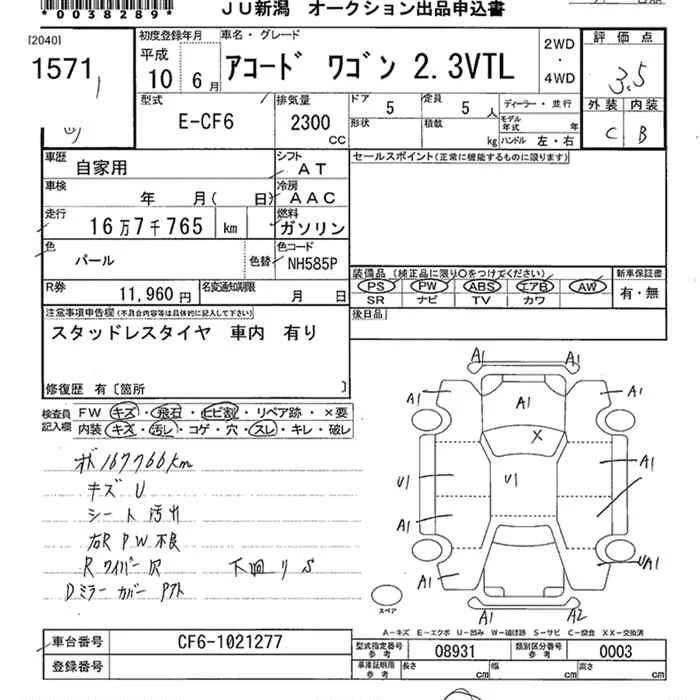 *0038289*
JU新潟 オークション出品申込書
[2040]
1571
初度登録年月
平成
10 6月
車名・グレード
アコード ワゴン 2.3VTL
2WD
・
4WD
評価点
3.5
外装 内装
C B
型式
E-CF6
排気量
2300
CC
ドア
5
定員
5人
形状
積載
kg
ディーラー・並行
モデル年式 年
ハンドル 左・右
車歴
自家用
シフト
AT
セールスポイント(正常に機能するものに限ります)
車検
年 月( 日)
冷房
AAC
走行
16万7千765 km
燃料
ガソリン
色
パール
色替
色コード
NH585P
装備品(純正品に限り○をつけてください)
新車保証書
PS PW ABS エアB AW
有・無
SR ナビ TV カワ
R券
11,960円
名変通知期限
月 日
後日品
注意事項申告欄(不具合内容等は具体的に記入して下さい)
スタッドレスタイヤ 車内 有り
修復歴 有〔箇所 〕
検査員
記入欄
FW キズ・飛石・ヒビ割・リペア跡・×要
内装 キズ・汚レ・コゲ・穴・スレ・キレ・破レ
167766km
キズ U
シート 汚れ
右R PW 不良
R ワイパー 穴
下回り S
Dミラー カバー
A1
A1
A1
A1
A1
X
U1
U1
A1
A1
A1
UA1
A1
A2
スペア
A-キズ E-エクボ U-凹み W-補修跡 S-サビ C-腐食 XX-交換済
車台番号
CF6-1021277
登録番号
型式指定番号
参考
08931
類別区分番号
参考
0003
車庫証明用
参考
長さ
cm
幅
cm
高さ
cm